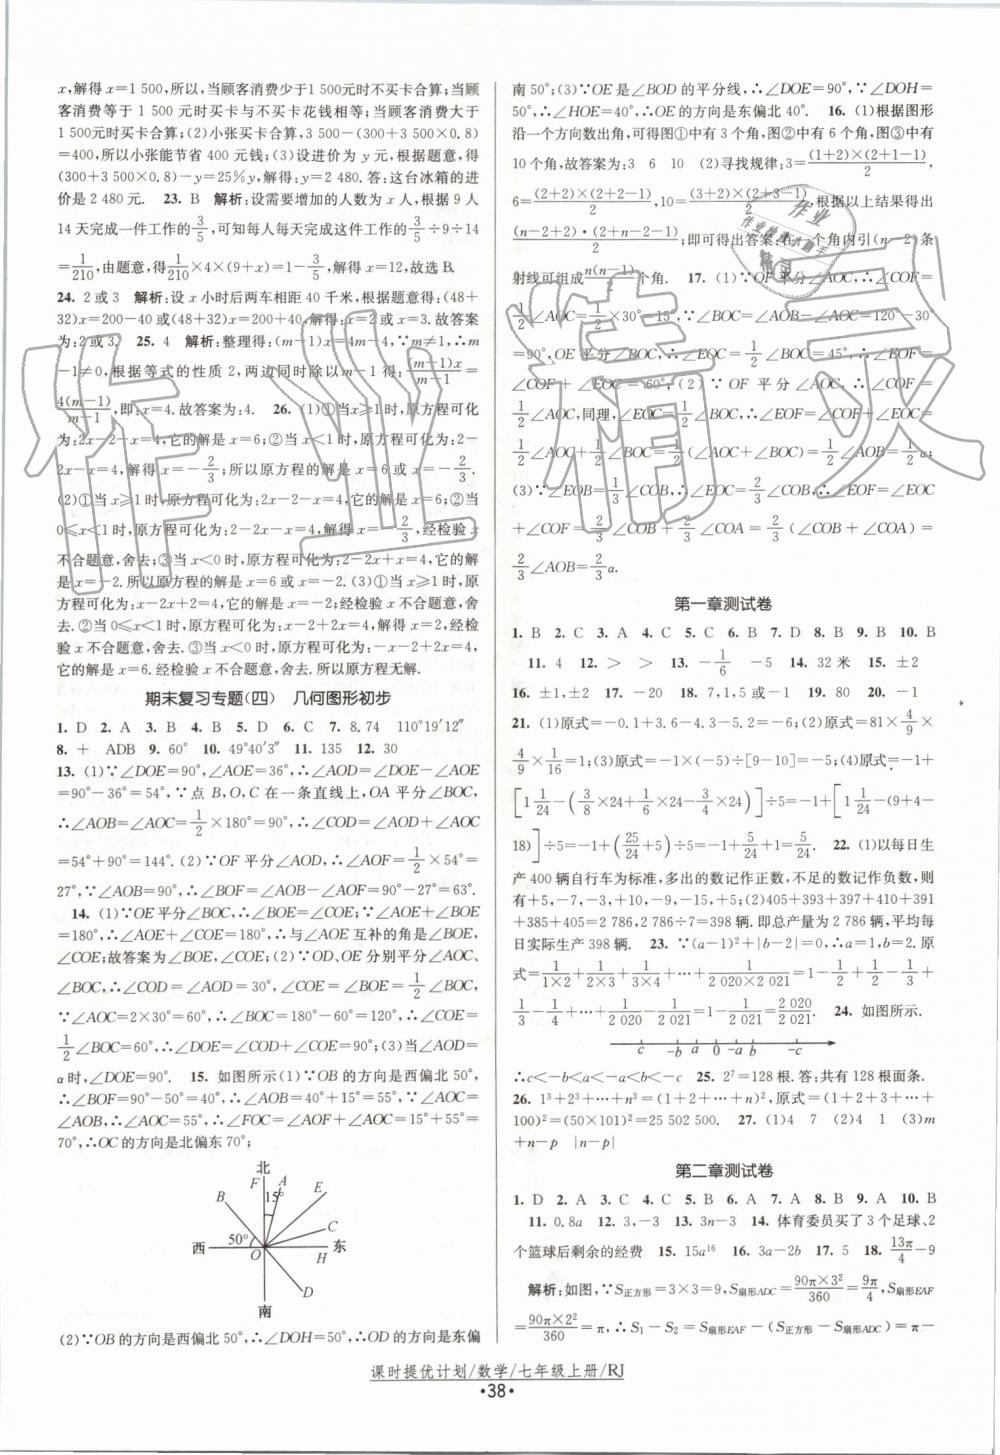 x,解得 x=1 500,所以,当顾客消费少于1 500元时不买卡合算;当顾
客消费等于 1 500 元时买卡与不买卡花钱相等;当顾客消费大于
1 500元时买卡合算;(2)小张买卡合算,3 500-(300+3 500×0.8)
=400,所以小张能节省 400 元钱;(3)设进价为 y 元,根据题意,得
(300+3 500×0.8)-y=25%y,解得:y=2 480.答:这台冰箱的进
价是 2 480 元. 23. B 解析:设需要增加的人数为 x 人,根据 9 人
14 天完成一件工作的3/5,可知每人每天完成这件工作的3/5÷9÷14
=1/210,由题意,得1/210×4×(9+x)=1-3/5,解得 x=12,故选 B.
24. 2 或 3 解析:设 x 小时后两车相距 40 千米,根据题意得:(48+
32)x=200-40 或(48+32)x=200+40,解得:x=2 或 x=3.故答案
为:2或3. 25. 4 解析:整理得:(m-1)x=4m-4,∵m≠1,∴m
-1≠0,根据等式的性质 2,两边同时除以m-1 得:(m-1)x/(m-1)=
4(m-1)/(m-1),即:x=4.故答案为:4. 26. (1)①当x≥1时,原方程可化
为:2x-2=x-4,它的解是 x=6;②当 x<1 时,原方程可化为:2-
2x=x-4,解得 x=-2/3;所以原方程的解是 x=6或 x=-2/3.
(2)①当 x≥1 时,原方程可化为:2x-2-x=4,它的解是 x=6;②当
0≤x<1 时,原方程可化为:2-2x-x=4,解得 x=-2/3,经检验 x
不合题意,舍去;③当 x<0 时,原方程可化为:2-2x+x=4,它的解
是 x=-2.所以原方程的解是 x=6 或 x=-2. (3)①当 x≥1 时,原
方程可化为:x-2x+2=4,它的解是 x=-2;经检验 x 不合题意,舍
去.②当 0≤x<1 时,原方程可化为:x-2+2x=4,解得 x=2,经检
验 x 不合题意,舍去.③当 x<0 时,原方程可化为:-x-2+2x=4,它
的解是 x=6.经检验 x 不合题意,舍去.所以原方程无解.
期末复习专题(四) 几何图形初步
1. D 2. A 3. B 4. B 5. D 6. C 7. 8.74 110°19′12″
8. + ADB 9. 60° 10. 49°40′3″ 11. 135 12. 30
13. (1)∵∠DOE=90°,∠AOE=36°,∴∠AOD=∠DOE-∠AOE
=90°-36°=54°,∵点 B,O,C 在一条直线上,OA 平分∠BOC,
∴∠AOB=∠AOC=1/2×180°=90°,∴∠COD=∠AOD+∠AOC
=54°+90°=144°. (2)∵OF 平分∠AOD,∴∠AOF=1/2×54°=
27°,∵∠AOB=90°,∴∠BOF=∠AOB-∠AOF=90°-27°=63°.
14. (1)∵OE平分∠BOC,∴∠BOE=∠COE,∵∠AOE+∠BOE
=180°,∴∠AOE+∠COE=180°,∴与∠AOE 互补的角是∠BOE、
∠COE;故答案为∠BOE、∠COE;(2)∵OD、OE 分别平分∠AOC、
∠BOC,∴∠COD=∠AOD=30°,∠COE=∠BOE=1/2∠BOC,
∴∠AOC=2×30°=60°,∴∠BOC=180°-60°=120°,∴∠COE=
1/2∠BOC=60°,∴∠DOE=∠COD+∠COE=90°;(3)当∠AOD=
α时,∠DOE=90°. 15. 如图所示(1)∵OB的方向是西偏北50°,
∴∠BOF=90°-50°=40°,∴∠AOB=40°+15°=55°,∵∠AOC=
∠AOB,∴∠AOC=55°,∴∠FOC=∠AOF+∠AOC=15°+55°=
70°,∴OC 的方向是北偏东 70°;
北
F A
B 15° E
50° C
西 O H 东
D
南
(2)∵OB 的方向是西偏北 50°,∴∠DOH=50°,∴OD 的方向是东偏
南 50°;(3)∵OE 是∠BOD 的平分线,∴∠DOE=90°,∵∠DOH=
50°,∴∠HOE=40°,∴OE 的方向是东偏北 40°. 16. (1)根据图形
沿一个方向数出角,可得图①中有 3 个角,图②中有 6 个角,图③中有
10 个角,故答案为:3 6 10 (2)寻找规律:3=(1+2)×(2+1-1)/2,
6=(2+2)×(2+2-1)/2,10=(3+2)×(2+3-1)/2,根据以上结果得出
(n-2+2)·(2+n-2-1)/2;即可得出答案:在一个角内引(n-2)条
射线可组成n(n-1)/2个角. 17. (1)∵OF平分∠AOC,∴∠COF=
1/2∠AOC=1/2×30°=15°,∵∠BOC=∠AOB-∠AOC=120°-30°
=90°,OE 平分∠BOC,∴∠EOC=1/2∠BOC=45°,∴∠EOF=
∠COF+∠EOC=60°;(2)∵OF 平分∠AOC,∴∠COF=
1/2∠AOC,同理,∠EOC=1/2∠BOC,∴∠EOF=∠COF+∠EOC=
1/2∠AOC+1/2∠BOC=1/2(∠AOC+∠BOC)=1/2∠AOB=1/2α;
(3)∵∠EOB=1/3∠COB,∴∠EOC=2/3∠COB,∴∠EOF=∠EOC
+∠COF=2/3∠COB+2/3∠COA=2/3(∠COB+∠COA)=
2/3∠AOB=2/3α.
第一章测试卷
1. B 2. C 3. A 4. C 5. C 6. B 7. D 8. B 9. B 10. B
11. 4 12. > > 13. -1/6 -5 14. 32 米 15. ±2
16. ±1,±2 17. -20 18. 7,1,5 或-1 19. 80 20. -1
21. (1)原式=-0.1+3.6-4.3-5.2=-6;(2)原式=81×4/9×
4/9×1/16=1;(3)原式=-1×(-5)÷[9-10]=-5;(4)原式=-1+
[1 1/24-(3/8×24+1/6×24-3/4×24)]÷5=-1+[1 1/24-(9+4-
18)]÷5=-1+(25/24+5)÷5=-1+5/24+1=5/24. 22. (1)以每日生
产 400 辆自行车为标准,多出的数记作正数,不足的数记作负数,则
有+5,-7,-3,+10,-9,-15,+5;(2)405+393+397+410+391
+385+405=2 786,2 786÷7=398 辆.即总产量为 2 786 辆,平均每
日实际生产 398 辆. 23. ∵(a-1)²+|b-2|=0,∴a=1,b=2.原
式=1/(1×2)+1/(2×3)+1/(3×4)+…+1/(2 020×2 021)=1-1/2+1/2-1/3+
1/3-1/4+…+1/2 020-1/2 021=1-1/2 021=2 020/2 021. 24. 如图所示.
c -b a 0 -a b -c
∴c<-b<a<-a<b<-c 25. 2⁷=128 根.答:共有 128 根面条.
26. 1³+2³+…+n³=(1+2+…+n)²,原式=(1+2+3+…+
100)²=(50×101)²=25 502 500. 27. (1)4 7 (2)4 1 (3)m
+n-p |n-p|
第二章测试卷
1. D 2. A 3. C 4. C 5. B 6. A 7. D 8. A 9. A 10. B
11. 0.8a 12. 3,-3 13. 3n-3 14. 体育委员买了 3 个足球、2
个篮球后剩余的经费 15. 15a¹⁶ 16. 3a-2b 17. 5 18. 13π/4-9
解析:如图,∵S正方形=3×3=9,S扇形ADC=90π×3²/360=9π/4,S扇形EAF
=90π×2²/360=π,∴S₁-S₂=S扇形EAF-(S正方形-S扇形ADC)=π-
课时提优计划/数学/七年级上册/RJ
·38·
作业精灵